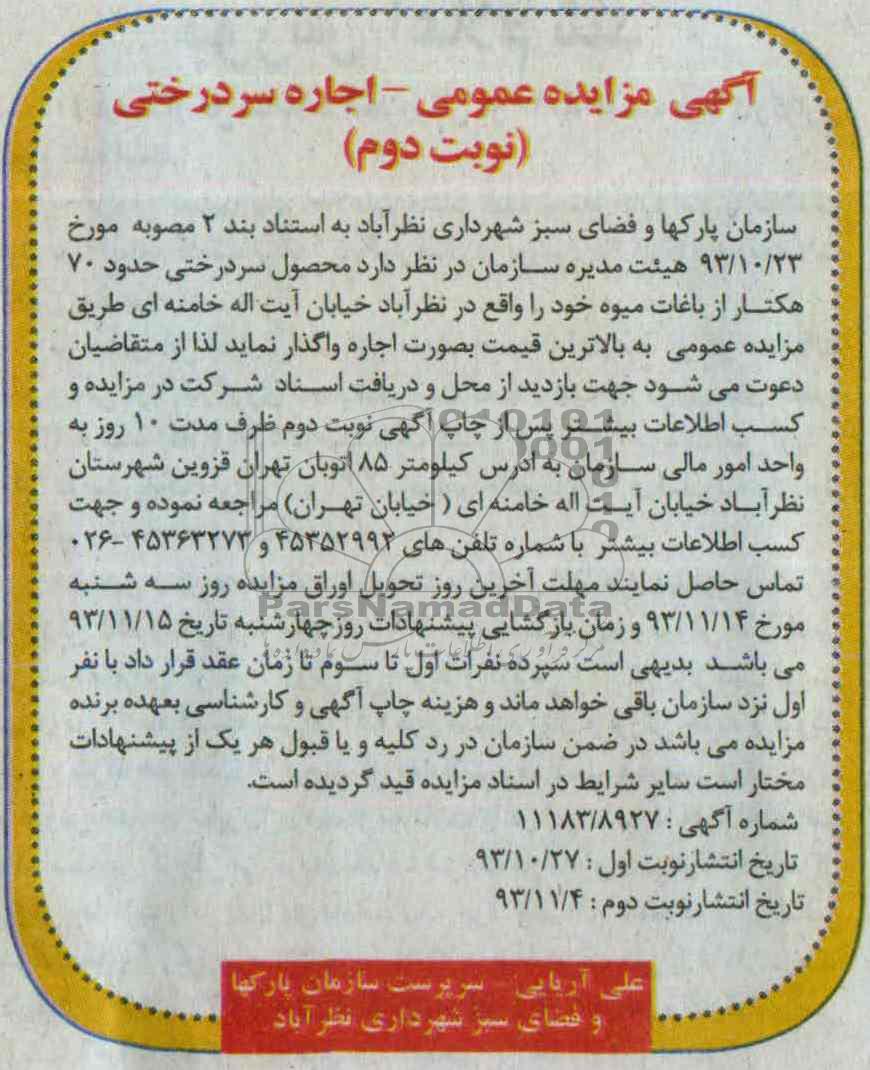 آگهی مزایده عمومی - اجاره سردرختی
(نوبت دوم)
سازمان پارکها و فضای سبز شهرداری نظرآباد به استناد بند ۲ مصوبه مورخ
۹۳/۱۰/۲۳ هیئت مدیره سازمان در نظر دارد محصول سردرختی حدود ۷۰
هکتار از باغات میوه خود را واقع در نظرآباد خیابان آیت اله خامنه ای طریق
مزایده عمومی به بالاترین قیمت بصورت اجاره واگذار نماید لذا از متقاضیان
دعوت می شود جهت بازدید از محل و دریافت اسناد شرکت در مزایده و
کسب اطلاعات بیشتر پس از چاپ آگهی نوبت دوم ظرف مدت ۱۰ روز به
واحد امور مالی سازمان به آدرس کیلومتر ۸۵ اتوبان تهران قزوین شهرستان
نظرآباد خیابان آیت اله خامنه ای ( خیابان تهران) مراجعه نموده و جهت
کسب اطلاعات بیشتر با شماره تلفن های ۴۵۳۵۲۹۹۲ و ۴۵۳۶۳۲۷۳ -۰۲۶
تماس حاصل نمایند مهلت آخرین روز تحویل اوراق مزایده روز سه شنبه
مورخ ۹۳/۱۱/۱۴ و زمان بازگشایی پیشنهادات روزچهارشنبه تاریخ ۹۳/۱۱/۱۵
می باشد بدیهی است سپرده نفرات اول تا سوم تا زمان عقد قرار داد با نفر
اول نزد سازمان باقی خواهد ماند و هزینه چاپ آگهی و کارشناسی بعهده برنده
مزایده می باشد در ضمن سازمان در رد کلیه و یا قبول هر یک از پیشنهادات
مختار است سایر شرایط در اسناد مزایده قید گردیده است.
شماره آگهی : ۱۱۱۸۳/۸۹۲۷
تاریخ انتشارنوبت اول : ۹۳/۱۰/۲۷
تاریخ انتشارنوبت دوم : ۹۳/۱۱/۴
علی آریایی - سرپرست سازمان پارکها
و فضای سبز شهرداری نظرآباد
ParsNamadData